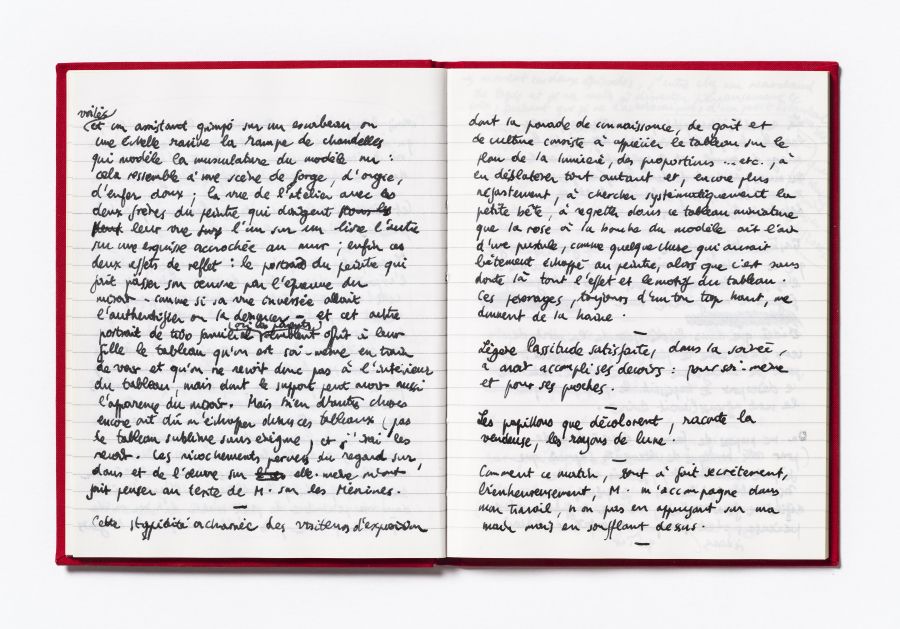 voilés
et un assistant grimpé sur un escabeau ou
une échelle ravive la rampe de chandelles
qui modèle la musculature du modèle nu :
cela ressemble à une scène de forge, d'orgie,
d'enfer doux ; la vue de l'atelier avec les
deux frères du peintre qui dirigent
leur vue l'un sur un livre l'autre
sur une esquisse accrochée au mur ; enfin ces
deux effets de reflet : le portrait du peintre qui
fait passer son œuvre par l'épreuve du
miroir - comme si sa vue inversée allait
l'authentifier ou la dénoncer - et cet autre
portrait de famille où les parents offrent à leur
fille le tableau qu'on est soi-même en train
de voir et qu'on ne revoit donc pas à l'intérieur
du tableau, mais dont le support peut avoir aussi
l'apparence du miroir. Mais bien d'autres choses
encore ont dû m'échapper dans ces tableaux (pas
le tableau sublime sans énigme, et j'irai les
revoir. Ces ricochements pervers du regard sur,
dans et de l'œuvre sur elle-même m'ont
fait penser au texte de M. sur les Ménines.
—
Cette stupidité acharnée des visiteurs d'exposition
dont la parade de connaissance, de goût et
de culture consiste à apprécier le tableau sur le
plan de la lumière, des proportions ... etc., à
en déblatérer tout autant et, encore plus
 à chercher systématiquement la
petite bête, à regretter dans ce tableau miniature
que la rose à la bouche du modèle ait l'air
d'une pustule, comme quelque chose qui aurait
bêtement échappé au peintre, alors que c'est sans
doute là tout l'effet et le motif du tableau.
Ces personnages, toujours d'un ton trop haut, me
donnent de la haine.
—
Légère lassitude satisfaite, dans la soirée,
à avoir accompli ses devoirs : pour soi-même
et pour ses proches.
—
Les papillons que décolorent, raconte la
vendeuse, les rayons de lune.
—
Comment ce matin, tout à fait secrètement,
bienheureusement, M. m'accompagne dans
mon travail, non pas en appuyant sur ma
main mais en soufflant dessus.
—